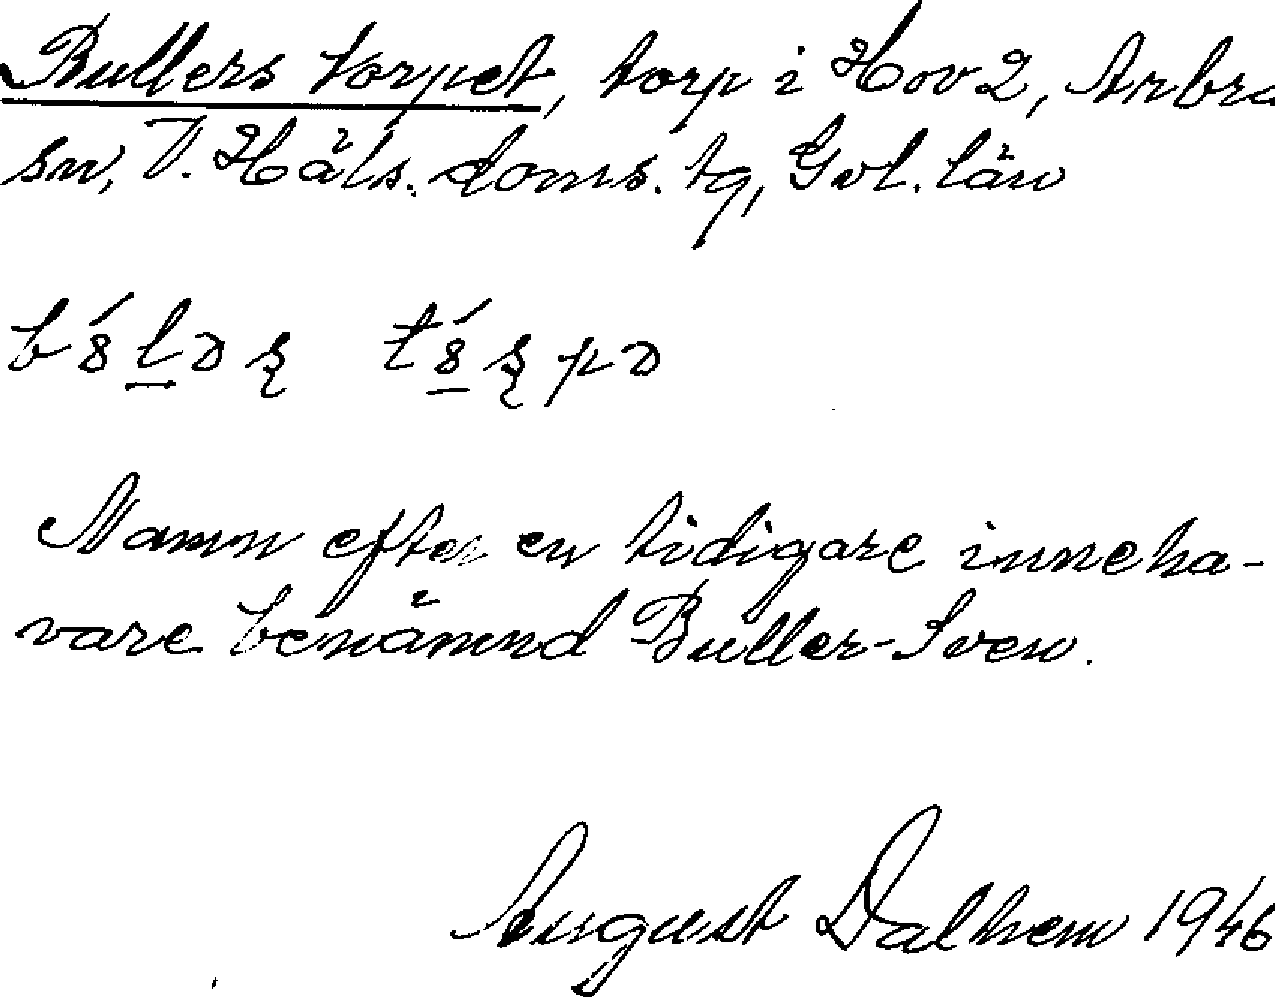 Bullers torpet, torp i Hov 2, Arbra
sn, V. Häls. doms. tg, Gvl. län
Namn efter en tidigare inneha-
vare benämnd Buller-Sven.
August Dalhem 1946